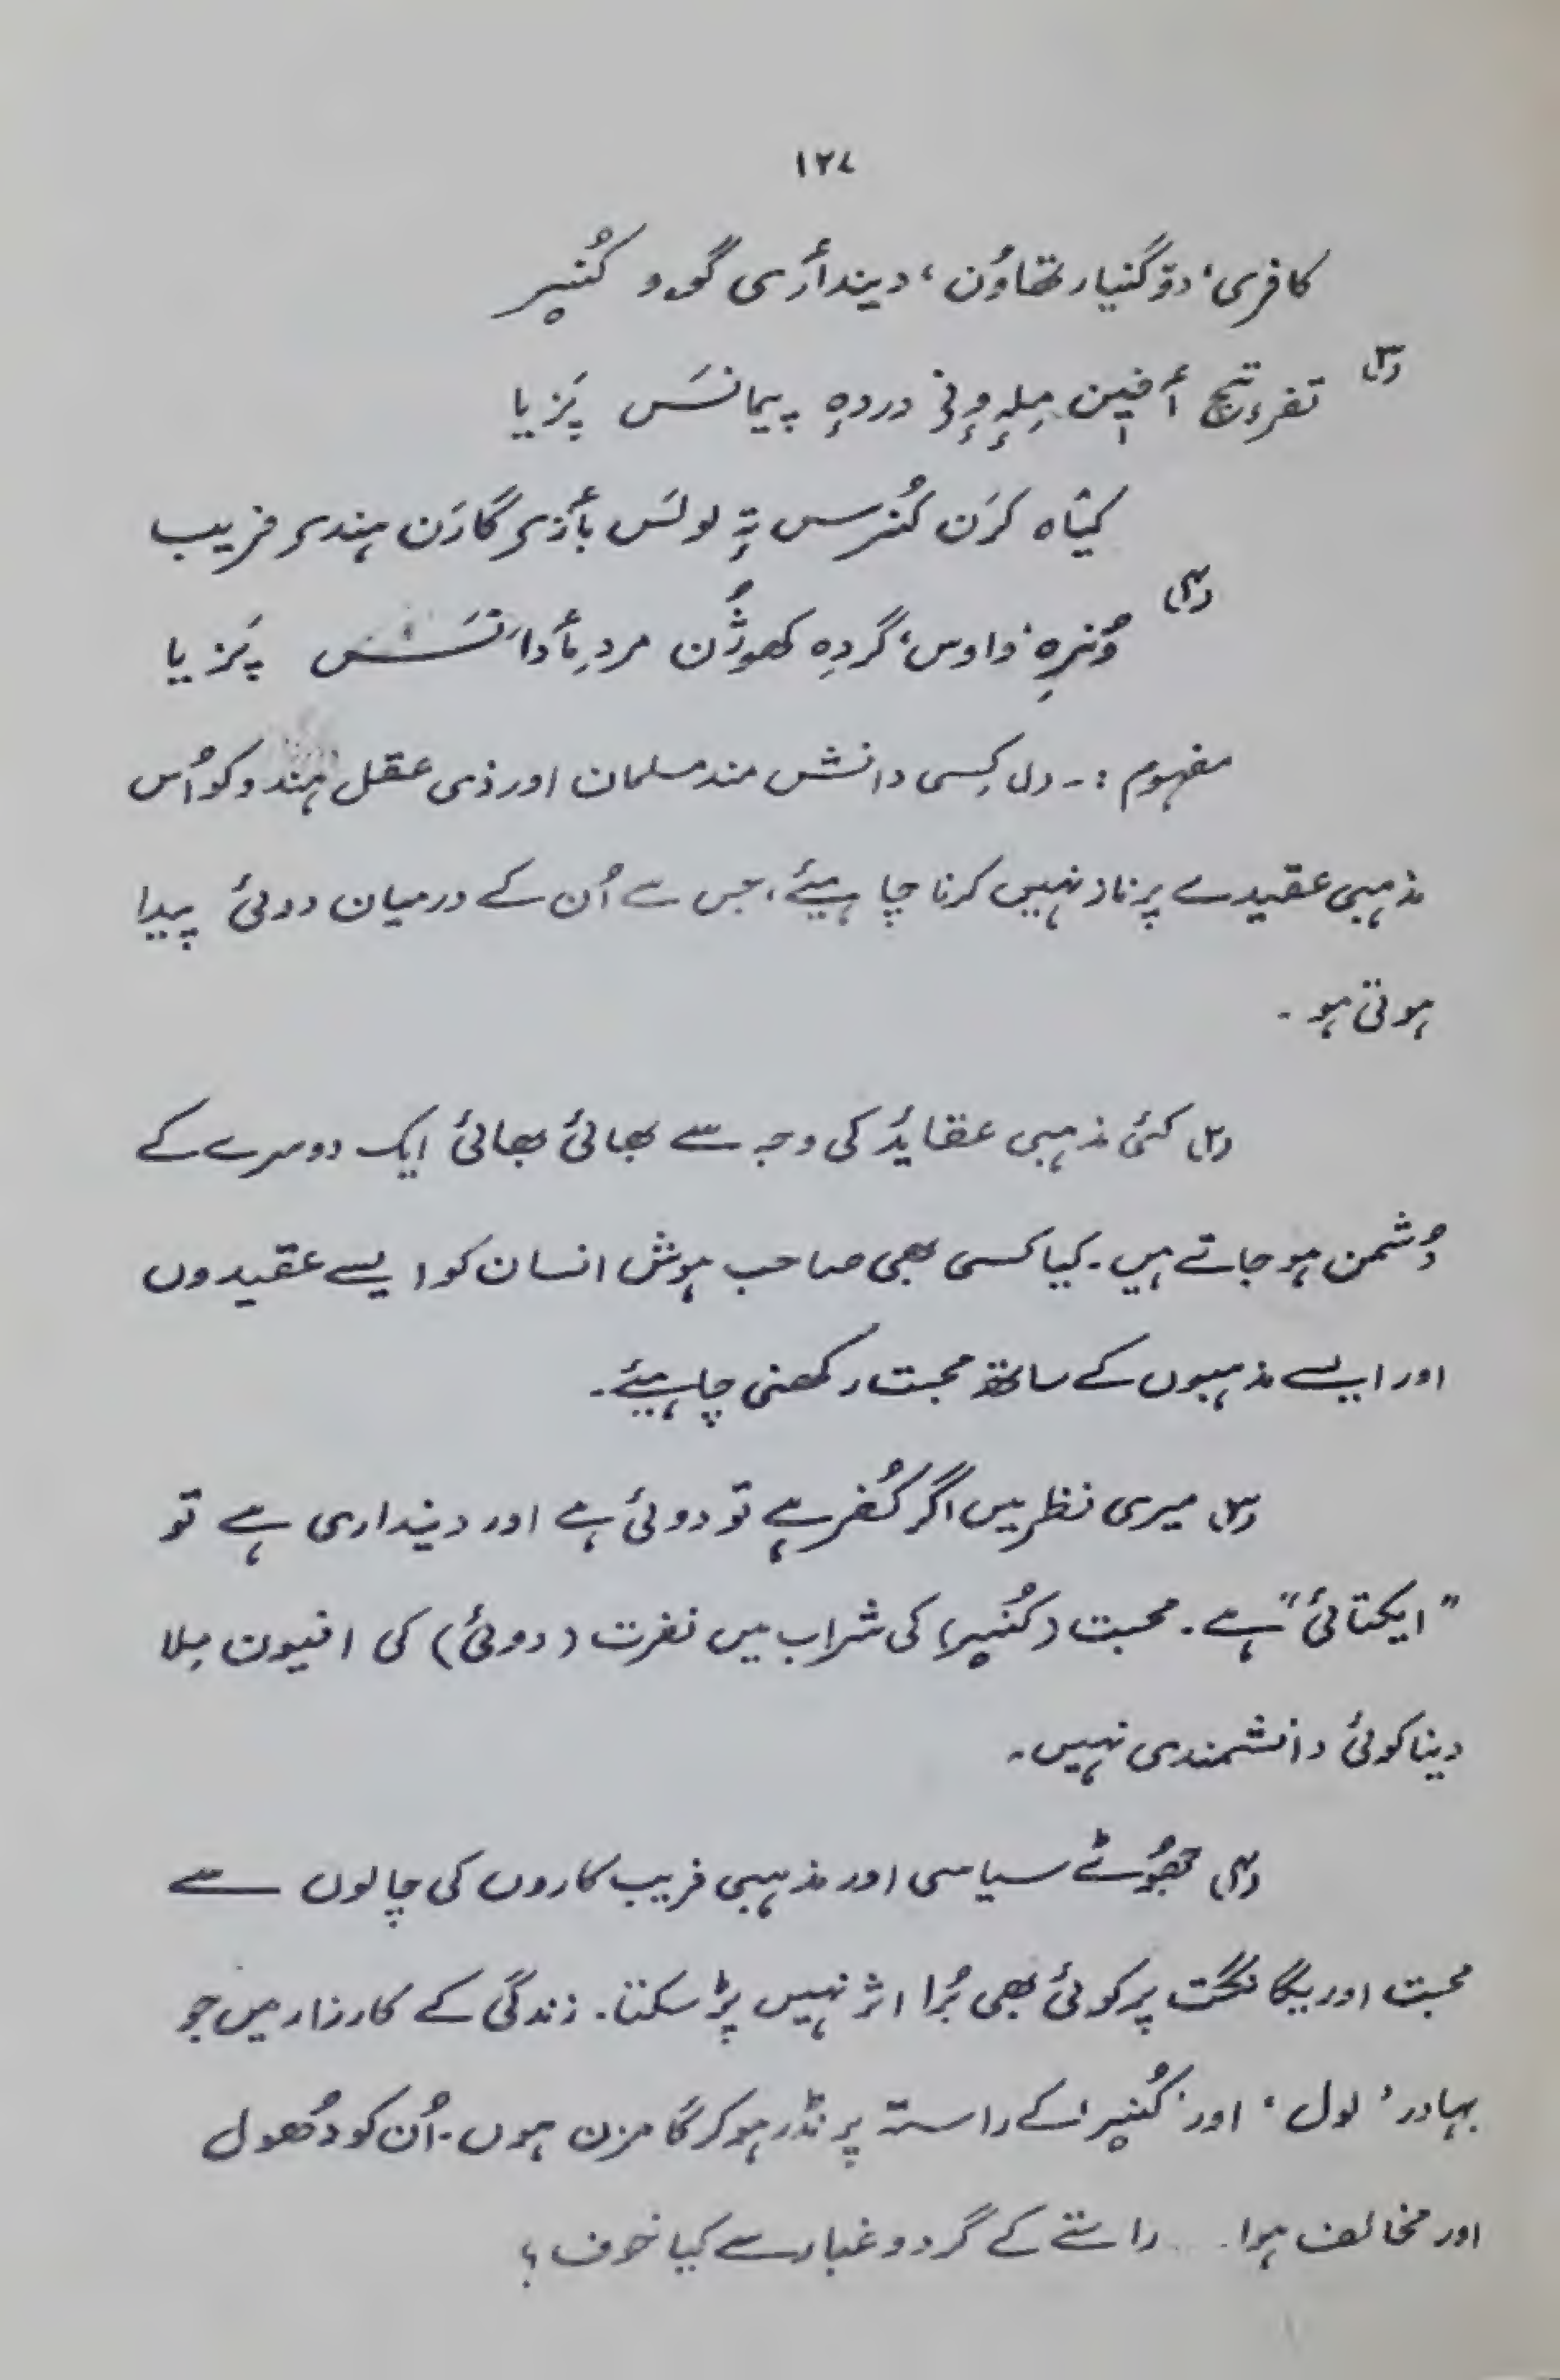 ۱۲۷
کافری، دوگنیار تھاوُن، دیندأری گوو کُنیر
(۳) تفرءتچ أفیٖن مِلہٕ وٕنی دردہٕ پیمانسَ پَزیا
کیٛاہ کرَن کُنرس تہٕ لولسَ بأزی گارَن ہندی فریب
(۴) وُنرہٕ، واوس، گردِہ کھوژُن مردِ مأدانَس پَزیا
مفہوم :- (۱) کِسی دانش مند مسلمان اور ذی عقل ہندو کو اُس
مذہبی عقیدے پر ناز نہیں کرنا چاہیئے، جس سے اُن کے درمیان دوئی پیدا
ہوتی ہو۔
(۲) کئی مذہبی عقایدُ کی وجہ سے بھائی بھائی ایک دوسرے کے
دُشمن ہو جاتے ہیں۔ کیا کسی بھی صاحب ہوش انسان کو ایسے عقیدوں
اور ایسے مذہبوں کے ساتھ محبت رکھنی چاہیئے۔
(۳) میری نظر میں اگر کُفر ہے تو دوئی ہے اور دینداری ہے تو
"ایکتائی" ہے۔ محبت (کُنیر) کی شراب میں نفرت (دوئی) کی افیون مِلا
دینا کوئی دانشمندی نہیں۔
(۴) جھوُٹے سیاسی اور مذہبی فریب کاروں کی چالوں سے
محبت اور یگانگت پر کوئی بھی بُرا اثر نہیں پڑ سکتا۔ زندگی کے کارزار میں جو
بہادر ’لول‘ اور ’کُنیر‘ کے راستہ پر نڈر ہو کر گامزن ہوں۔ اُن کو دُھول
اور مخالف ہوا۔۔۔ راستے کے گرد و غبار سے کیا خوف؟